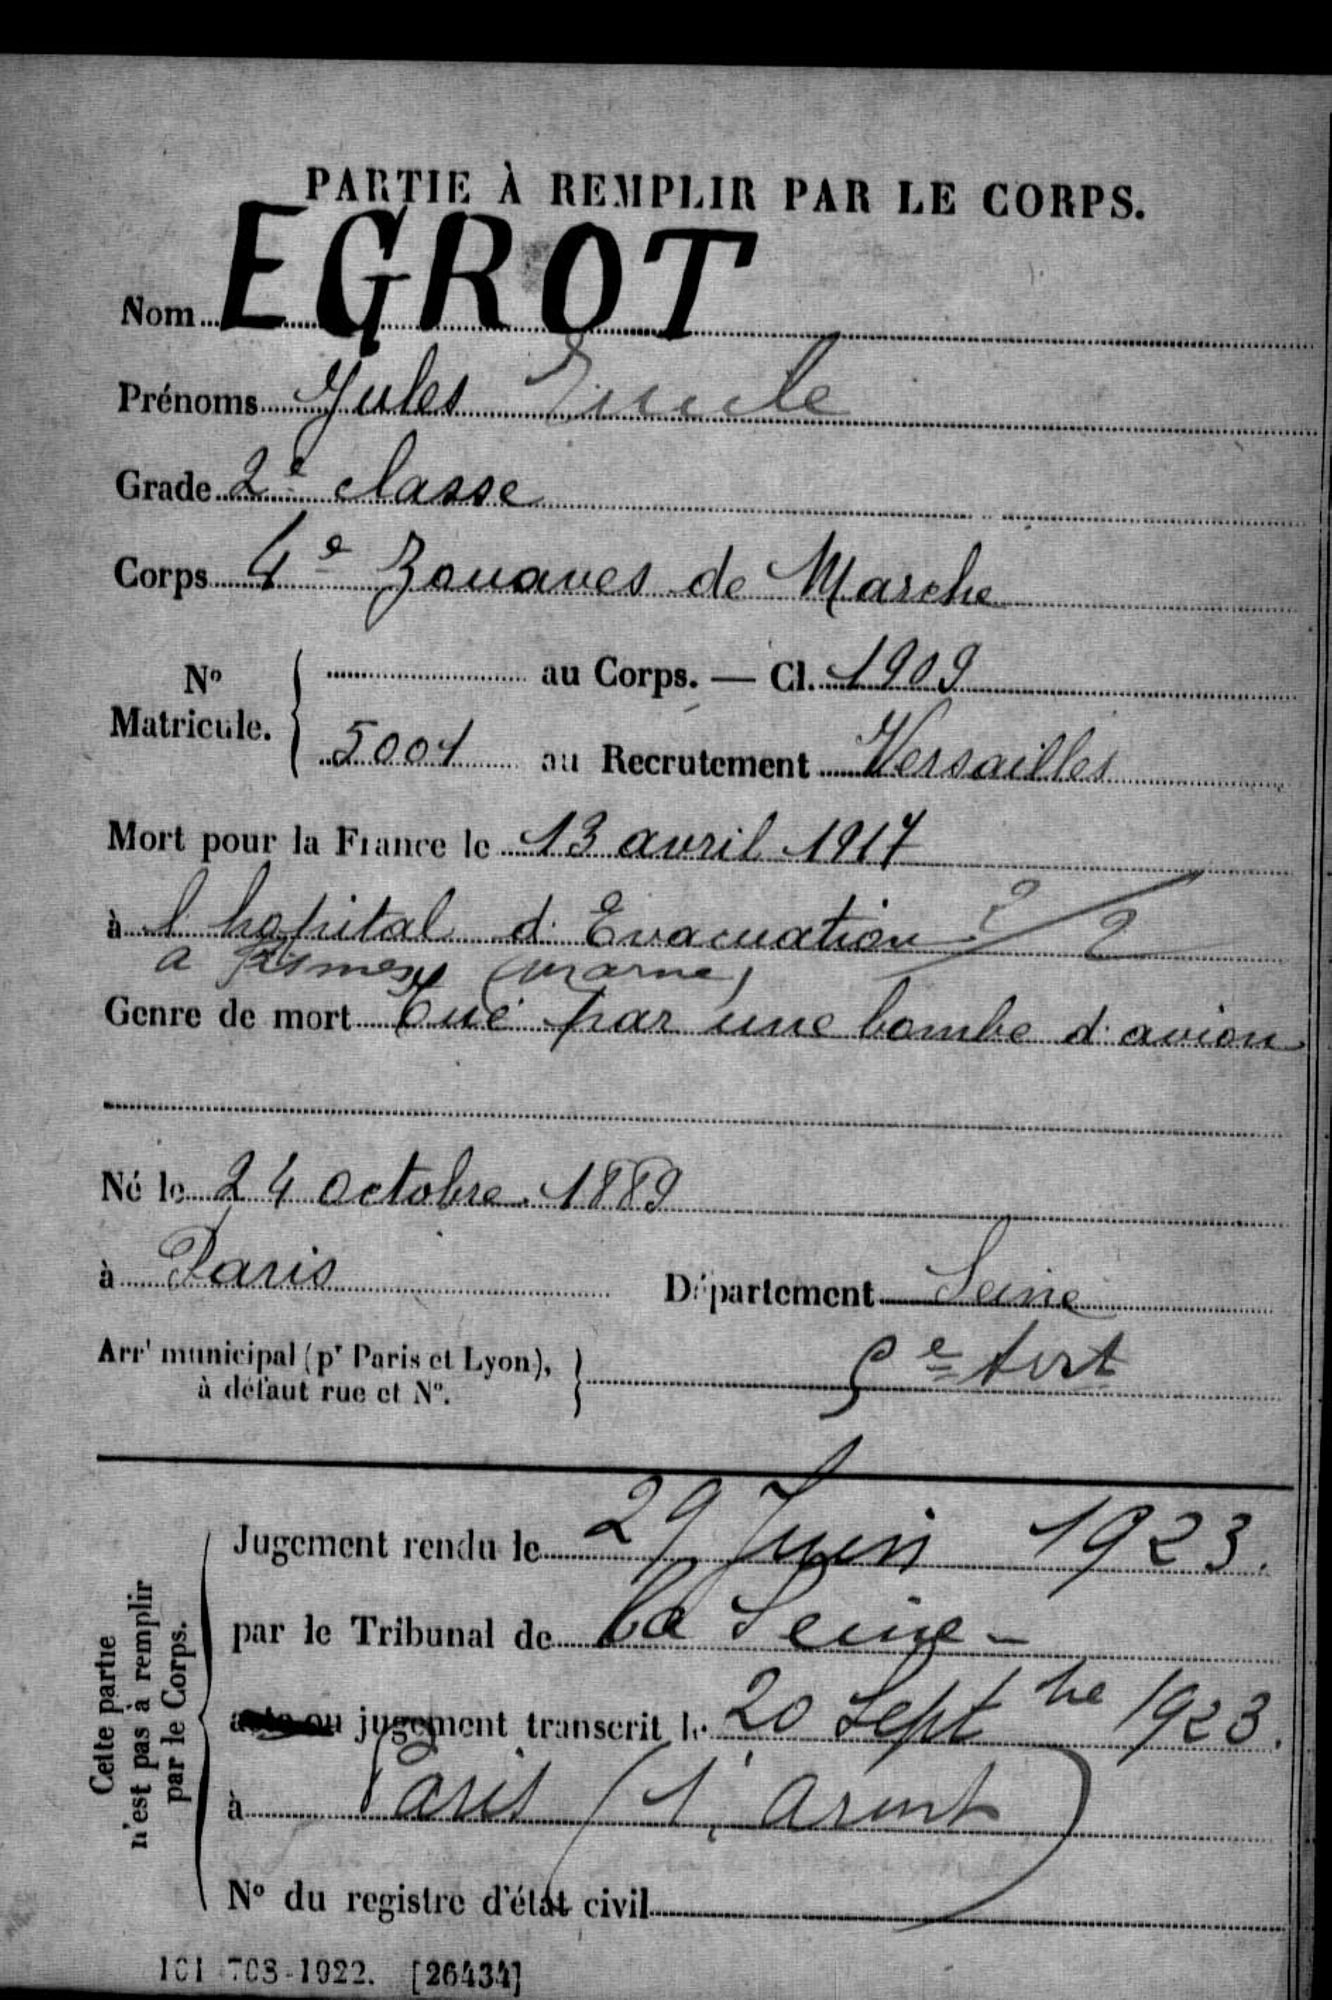 PARTIE À REMPLIR PAR LE CORPS.
Nom EGROT
Prénoms Jules Emile
Grade 2e classe
Corps 4e Zouaves de Marche
No Matricule. au Corps. — Cl. 1909
5001 au Recrutement Versailles
Mort pour la France le 13 avril 1917
à l'hopital d'Evacuation
a Fismes (Marne)
Genre de mort Tué par une bombe d'avion
Né le 24 octobre 1889
à Paris Département Seine
Arrt municipal (pr Paris et Lyon),
à défaut rue et No.
Cette partie
n'est pas à remplir
par le Corps.
Jugement rendu le 29 Juin 1923.
par le Tribunal de la Seine -
acte ou jugement transcrit le 20 Septbre 1923.
à Paris (1. Arrnt)
No du registre d'état civil
101-708-1922. [26434]